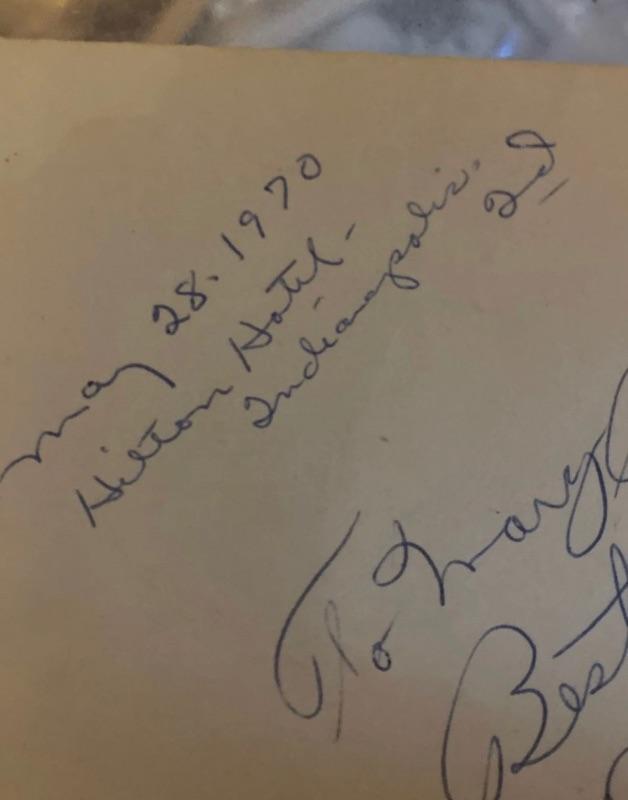 May 28. 1970
Hilton Hotel -
Indianapolis. Ind
To Mary
Best